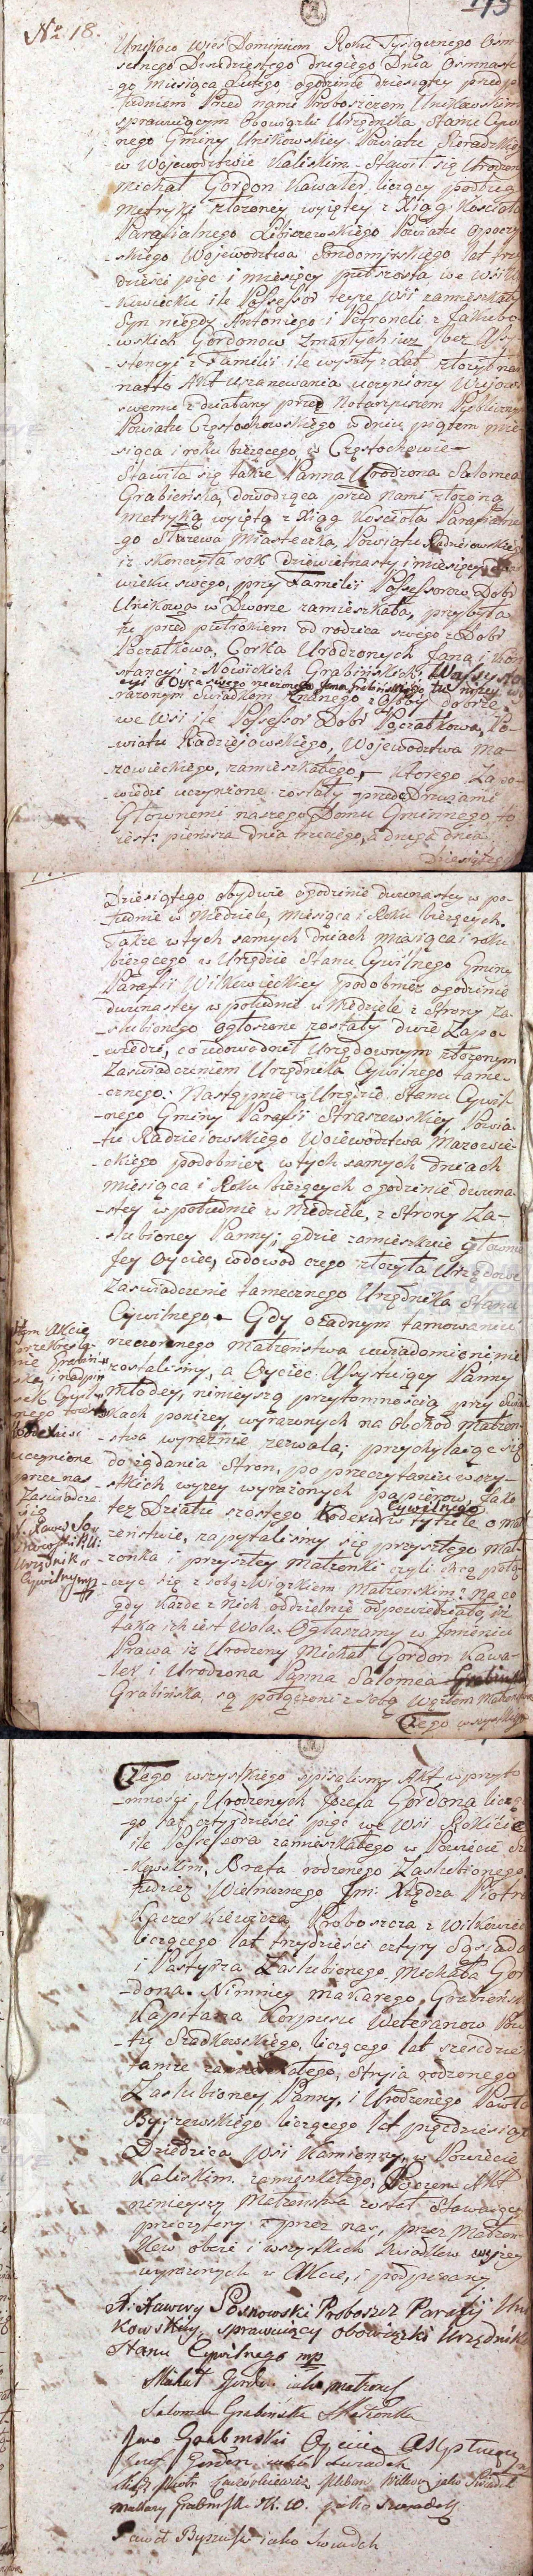 No 18.
Unikowo Wieś Dominium Roku Tysiącznego Osm-
setnego Dwudziestego drugiego Dnia Osmnaste-
go Miesiąca Lutego ogodzinie dziesiątey przed po
łudniem Przed nami Proboszczem Unikowskim
sprawuiącym Obowiązki Urzędnika Stanu Cywil
nego Gminy Unikowskiey Powiatu Sieradzkie
w Woiewodztwie Kaliskim Stawił się Urodzon
Michał Gordon Kawaler liczący podług
Metryki złożoney wyiętey z Xiąg Kościoła
Parafialnego Powiatu Opoczyn
-skiego Woiewodztwa Sandomirskiego lat trzy
dzieści pięć i miesięcy we Wsi
ile Possessor teyże Wsi zamieszkały
Syn niegdy Antoniego i Petroneli z Jakubo-
-wskich Gordonow zmarłych iuż bez Assy-
-stencyi z Familii ile wyszły z Lat złożył nam
nadto Akt uszanowania uczyniony Wuiowi
swemu zdziałany przed Notaryuszem Publicznym
Powiatu Częstochowskiego w dniu piątym mie-
-siąca i roku bieżącego w Częstochowie -
Stawiła się także Panna Urodzona Salomea
Grabieńska, dowodząca przed nami złożoną
Metryką wyiętą z Xiąg Kościoła Parafialne-
go Miasteczka, Powiatu Radzieiowskiego
iż skończyła rok dziewietnasty i miesięcy
wieku swego, przy Familii Possessorow Dobr
Unikowa w Dworze zamieszkała, przybyła
tu przed pułrokiem od rodzica swego z Dobr
Początkowa, Corka Urodzonych Jana i Kon
stancyi z Nowickich Grabińskich, w Assysten
cyi Oyca swego rzeczonego Jana Grabińskiego, tu niżey wy
rażonym Swiadkom Znanego z Osoby dobrze
we Wsi ile Possessor Dobr Początkowa, Po-
wiatu Radzieiowskiego, Woiewodztwa Ma-
zowieckiego, zamieszkałego, - Ktorego Zapo-
wiedzi uczynione zostały przed Drzwiami
Głownemi naszego Domu Gminnego, to
iest: pierwsza dnia trzeciego, a druga dnia
Dziesiątego
Dziesiątego, obydwie ogodzinie dwunastey w po-
-łudnie w Niedziele, Miesiąca i Roku bieżących.
Także wtych samych dniach miesiąca i roku
bieżącego w Urzędzie Stanu Cywilnego Gminy
Parafii Wilkowieckiey podobnież ogodzinie
dwunastey w południe w Niedziele z Strony Za-
-slubionego ogłoszone zostały dwie Zapo-
-wiedzi, co udowodnił Urzędownym złożonym
Zaswiadczeniem Urzędnika Cywilnego tame-
-cznego. Następnie w Urzędzie Stanu Cywil-
-nego Gminy Parafii Straszewskiey, Powia-
-tu Radzieiowskiego Woiewodztwa Mazowie-
-ckiego podobnież wtych samych dniach
miesiąca i Roku bieżących ogodzinie dwuna-
-stey w południe w Niedziele, z Strony Za-
-slubioney Panny; gdzie zamieszkuie głownie
Jey Oyciec, wdowod czego złożyła Urzędowe
Zaswiadczenie tamecznego Urzędnika Stanu
Cywilnego - Gdy ożadnym tamowaniu
rzeczonego małżeństwa uwiadomieni nie
zostalismy, a Oyciec Assystuiący Panny
Młodey, ninieyszą przytomnością przy Swiad
kach poniżey wyrażonych na Obchod Małżen-
-stwa wyraznie zezwala; przychylaiąc się
do żądania Stron, po przeczytaniu wszy-
-stkich wyżey wyrażonych papierow, Jako
też Działu szostego Kodexu Cywilnego w tytule o Mał
żenstwie, zapytalismy się przyszłego Mał-
żonka i przyszłey Małżonki czyli chcą połą-
czyć się z sobą Związkiem Małżenskim? Na co
gdy każde z Nich oddzielnie odpowiedziało, iż
taka ich iest Wola, Ogłaszamy w Jmieniu
Prawa iż Urodzony Michał Gordon Kawa-
-ler i Urodzona Panna Salomea
Grabińska są połączeni z sobą Węzłem Małżeńskim
Czego wszystkiego
Wtym Akcie
przekreśle-
nie Grabiń-
ska, i nadpi
sek Cywil
nego
uczynione
przez nas
Zaświadcza
się
X. Xawery So
snowski P. U.
Urzędnik
Cywilny mp
Czego wszystkiego spisalismy Akt w przyto
-mności, Urodzonych Jozefa Gordona liczą-
-go lat czterdzieści pięć we Wsi Rokicie
ile Possessora zamieszkałego w Powiecie
Brata rodzonego Zaslubionego,
tudzież Wielmożnego Jmi Xiędza Piotra
Kaczorkiewicza Proboszcza z Wilkowiec
liczącego lat trzydzieści cztyry Sąsiada
i Pasterza Zaslubionego Michała Gor
-dona. Niemniey Makarego Grabińskiego
Kapitana Korpusu Weteranow Powia
-tu Szadkowskiego, liczącego lat sześcdziesiąt
tamże zamieszkałego, Stryia rodzonego
Zaslubioney Panny, i Urodzonego Pawła
Byszewskiego liczącego lat pięcdziesiąt
Dziedzica Wsi Kamienny, w Powiecie
Kaliskim zamieszkałego, Poczem Akt
ninieyszy Małżeństwa został Stawaiącym
przeczytany i przez nas, przez Małżon-
kow oboie i wszystkich Swiadkow wyżey
wyrażonych w Akcie, i podpisany
X. Xawery Sosnowski Proboszcz Parafii Uni
kowskiey, sprawuiący obowiązki Urzędnika
Stanu Cywilnego mp
Michał Gordon iako małżonek
Salomea Grabińska Małżonka
Jan Grabinski Oyciec Asystuiący
Josef Gordon iako swiadek
Xiądz Piotr Kaczorkiewicz Pleban Wilkow: jako Swiadek
Makary Grabinski K. W. jako Swiadek
Paweł Byszewski iako Swiadek